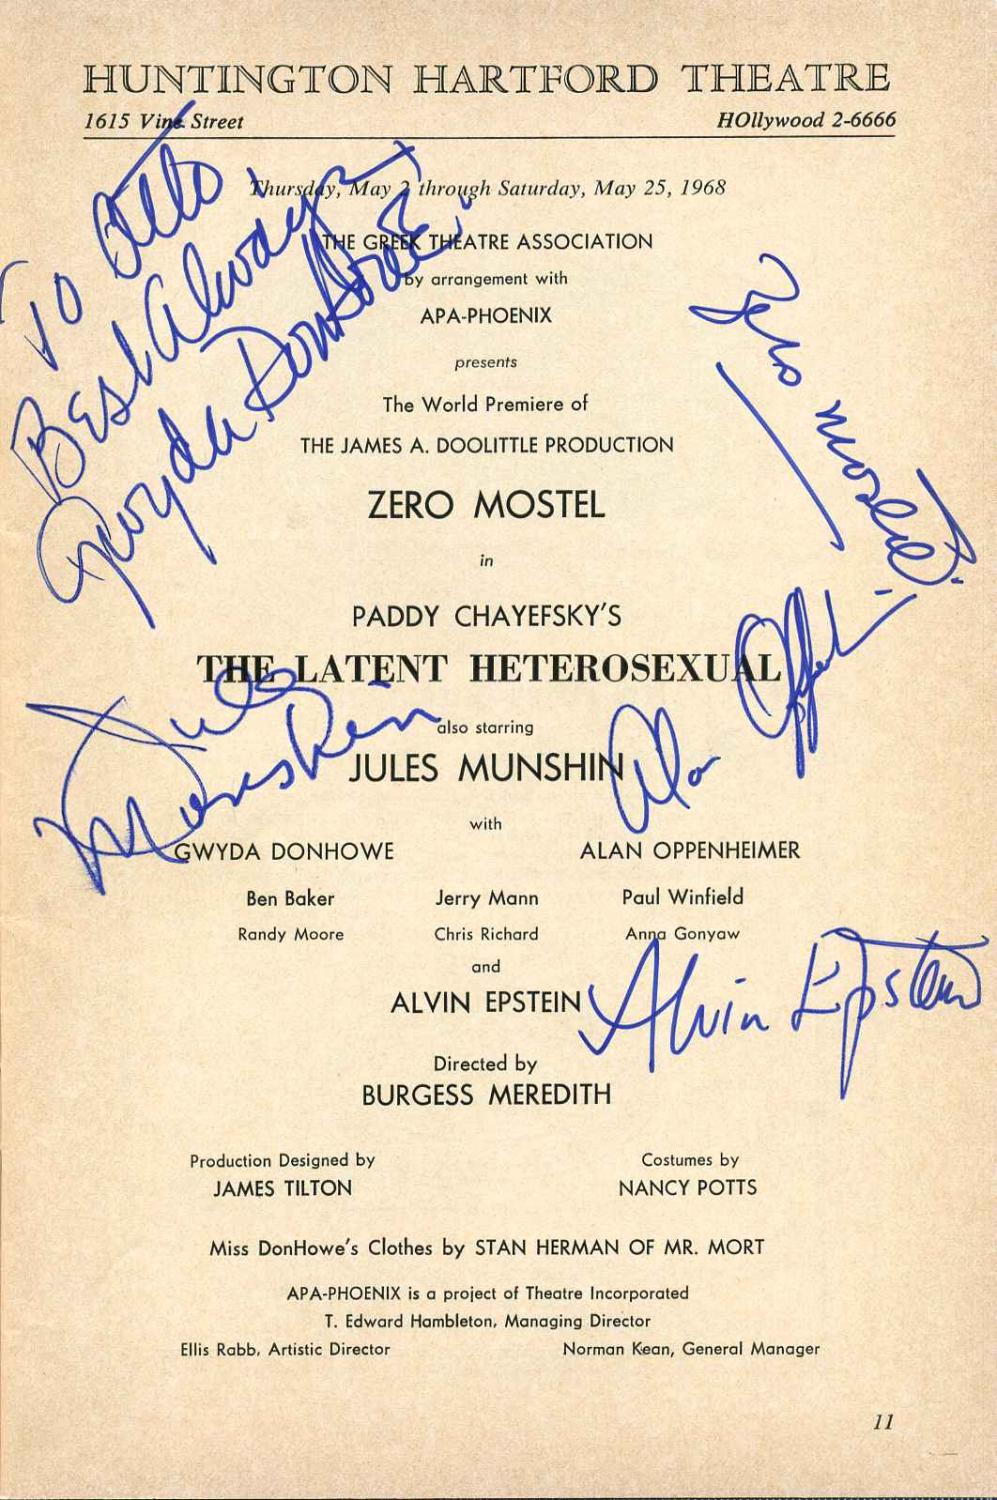 HUNTINGTON HARTFORD THEATRE
1615 Vine Street HOllywood 2-6666
Thursday, May 2 through Saturday, May 25, 1968
THE GREEK THEATRE ASSOCIATION
by arrangement with
APA-PHOENIX
presents
The World Premiere of
THE JAMES A. DOOLITTLE PRODUCTION
ZERO MOSTEL
in
PADDY CHAYEFSKY'S
THE LATENT HETEROSEXUAL
also starring
JULES MUNSHIN
with
GWYDA DONHOWE ALAN OPPENHEIMER
Ben Baker Jerry Mann Paul Winfield
Randy Moore Chris Richard Anna Gonyaw
and
ALVIN EPSTEIN
Directed by
BURGESS MEREDITH
Production Designed by Costumes by
JAMES TILTON NANCY POTTS
Miss DonHowe's Clothes by STAN HERMAN OF MR. MORT
APA-PHOENIX is a project of Theatre Incorporated
T. Edward Hambleton, Managing Director
Ellis Rabb, Artistic Director Norman Kean, General Manager
11
To Otto
Best Always
Gwyda DonHowe
Zero Mostel
Jules
Munshin
Alan Oppenheimer
Alvin Epstein